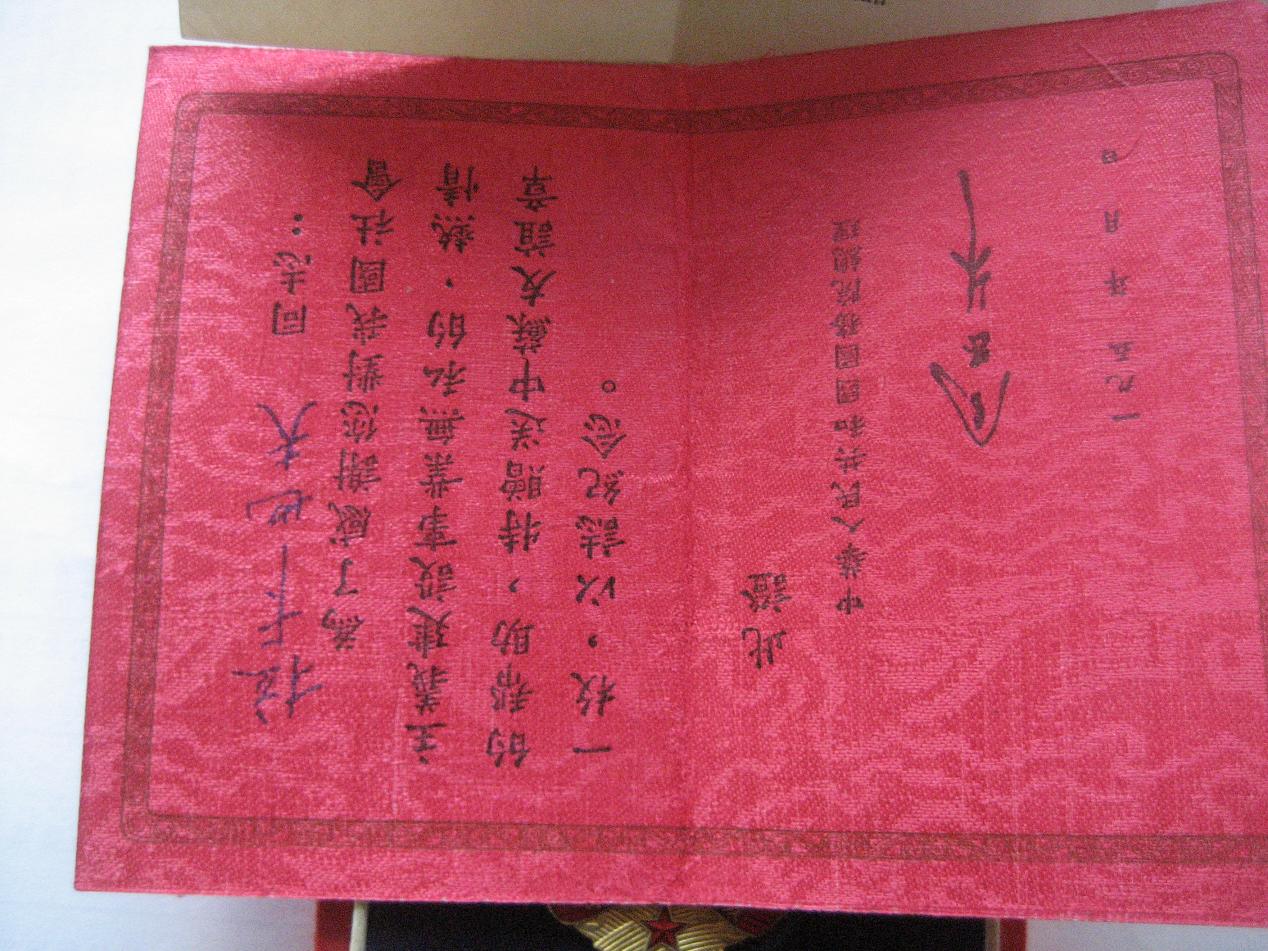 夫 同志：
為了感謝您對我國社會
主義建設事業無私的、熱情
的帮助，特贈送中蘇友誼章
一枚，以誌紀念。
此證
中華人民共和國國務院總理
周恩來
一九五 年 月 日